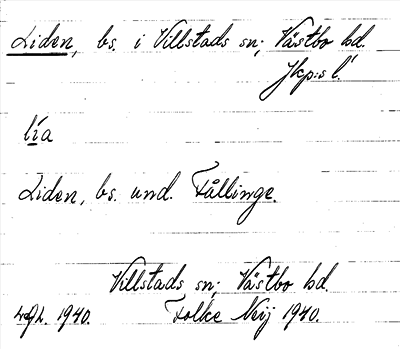 Liden, bs. i Villstads sn; Västbo hd.
Jkp:s l.
lía
Liden, bs. und. Tållinge.
Villstads sn; Västbo hd.
1940. Folke Neij 1940.